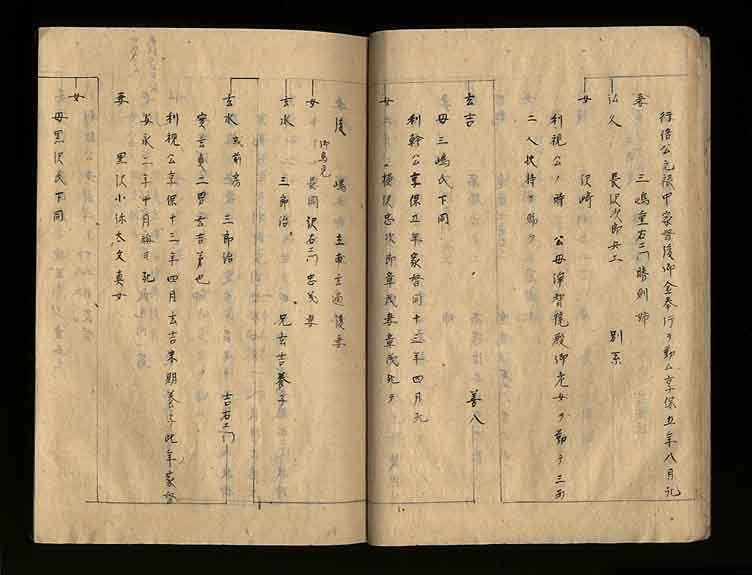 行信公元禄中家督後御金奉行ヲ勤ム享保五年八月死
妻 三嶋重右エ門勝則姉
弘久 長沢次郎左エ 別系
女 沢崎
利視公ノ時 公母浄智院殿御老女ヲ勤テ三両
二人扶持ヲ賜フ
玄吉 善八
母三嶋氏下同
利幹公享保五年家督同十三年四月死
女 忠次郎章茂妻章茂死テ
後 嶋 主 妻
女 御鳥見 長岡沢右エ門忠 妻
玄水 三郎治 兄玄吉養子
玄水 或前房 三郎治 吉右エ門
実吉 二男玄吉弟也
利視公享保十三年四月玄吉末期養子此年家督
安永二年 月 日死
妻 黒沢小 太 女
女
母黒沢氏下同